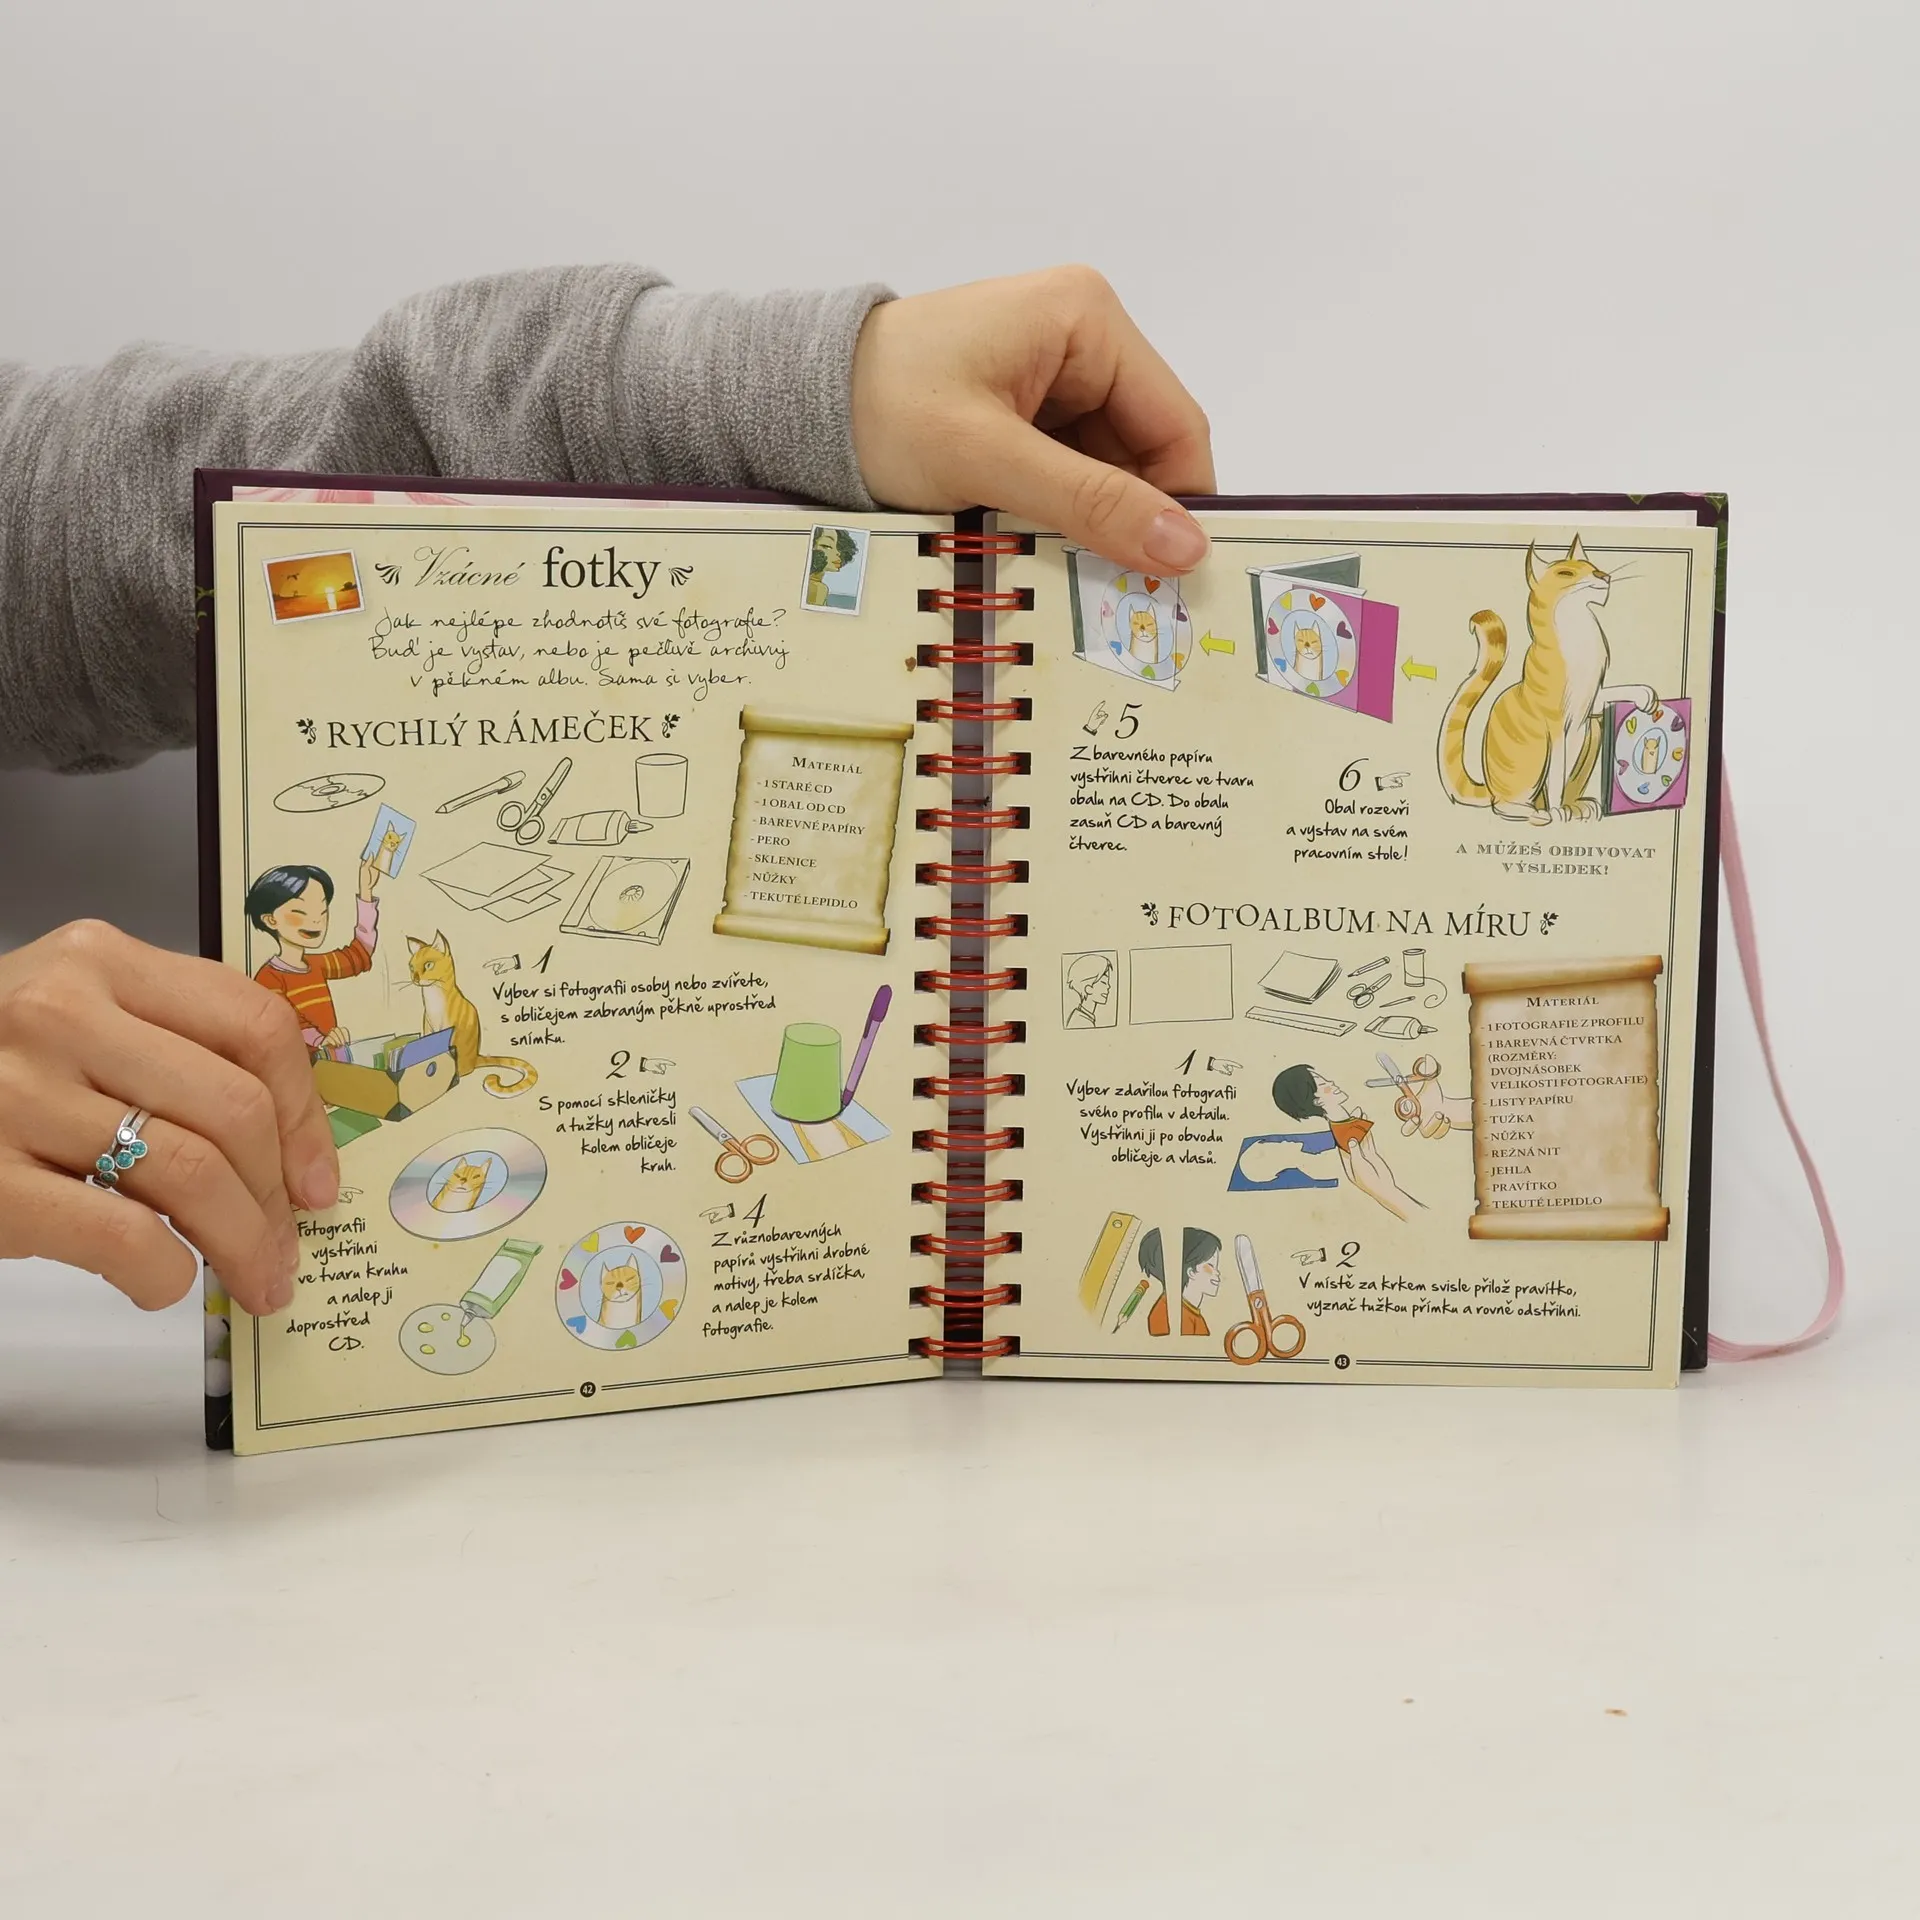 Vzácné fotky
Jak nejlépe zhodnotíš své fotografie?
Buď je vystav, nebo je pečlivě archivuj
v pěkném albu. Sama si vyber.
RYCHLÝ RÁMEČEK
MATERIÁL
- 1 STARÉ CD
- 1 OBAL OD CD
- BAREVNÉ PAPÍRY
- PERO
- SKLENICE
- NŮŽKY
- TEKUTÉ LEPIDLO
1
Vyber si fotografii osoby nebo zvířete,
s obličejem zabraným pěkně uprostřed
snímku.
2
S pomocí skleničky
a tužky nakresli
kolem obličeje
kruh.
Fotografii
vystřihni
ve tvaru kruhu
a nalep ji
doprostřed
CD.
4
Z různobarevných
papírů vystřihni drobné
motivy, třeba srdíčka,
a nalep je kolem
fotografie.
42
5
Z barevného papíru
vystřihni čtverec ve tvaru
obalu na CD. Do obalu
zasuň CD a barevný
čtverec.
6
Obal rozevři
a vystav na svém
pracovním stole!
A MŮŽEŠ OBDIVOVAT
VÝSLEDEK!
FOTOALBUM NA MÍRU
MATERIÁL
- 1 FOTOGRAFIE Z PROFILU
- 1 BAREVNÁ ČTVRTKA
(ROZMĚRY:
DVOJNÁSOBEK
VELIKOSTI FOTOGRAFIE)
- LISTY PAPÍRU
- TUŽKA
- NŮŽKY
- REŽNÁ NIT
- JEHLA
- PRAVÍTKO
- TEKUTÉ LEPIDLO
1
Vyber zdařilou fotografii
svého profilu v detailu.
Vystřihni ji po obvodu
obličeje a vlasů.
2
V místě za krkem svisle přilož pravítko,
vyznač tužkou přímku a rovně odstřihni.
43